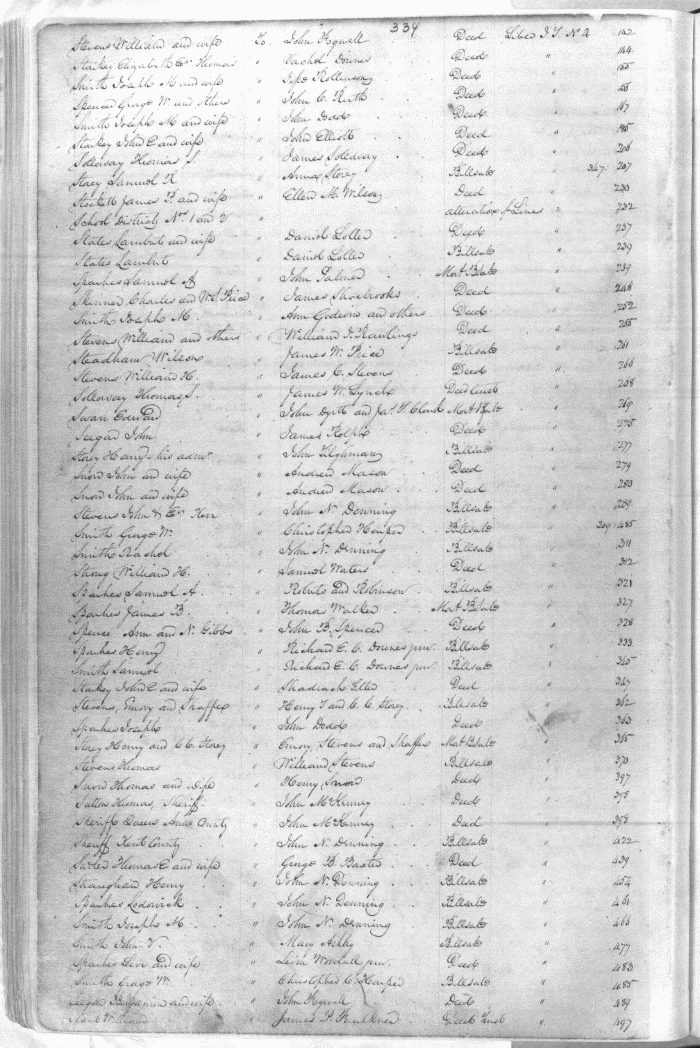 334
Stevens William and wife To John Hogwell Deed Liber J.T. No 4 142
Starkey Elizabeth Exr Thomas " Vachel Downes Deed " 144
Smith Joseph M and wife " Pike Rollinson Deed " 155
Spencer George W. and others " John C. Ruth Deed "
Smith Joseph M and wife " John Dodd Deed " 167
Starkey John C and wife " John Elliott Deed " 195
Solloway Thomas S " James Solloway Deed " 206
Storey Samuel K " Anna Storey Billsale " 347. 207
Stockett James P. and wife " Ellen M. Wilson Deed " 230
School Districts Nos 1 and 2 " alteration of Lines " 232
States Lambert and wife " Daniel Loller Deed " 237
States Lambert " Daniel Loller Billsale " 239
Sparkes Samuel A " John Palmer Mort Bsale " 239
Skinner Charles and Wm. Price " James Shoebrooks Deed " 248
Smith Joseph M. " Ann Godwin and others Deed " 252
Stevens William and others " William J. Rawlings Deed " 255
Steadham Wilson " James W. Price Billsale " 261
Stevens William H. " James C. Stevens Deed " 266
Solloway Thomas S. " James W. Lynch Deed Trust " 268
Swan Edward " John and Jas. H. Mort Bsale " 269
Seegar John " James Rolph Deed " 275
Storey Henry his admr " John Tilghman Billsale " 277
Snow John and wife " Andrew Mason Deed " 279
Snow John and wife " Andrew Mason Deed " 283
Stevens John & Exr Kerr " John N. Denning Billsale " 284
Smith George W. " Christopher Hooper Billsale " 209 485
Smith Rachel " John N. Denning Billsale " 311
Strong William H. " Samuel Waters Deed " 312
Sparkes Samuel A. " Roberts and Robinson Billsale " 321
Sparkes James B. " Thomas Walker Mort Bsale " 327
Spence Ann and N. Gibbs " John B. Spencer Deed " 328
Sparkes Henry " Richard E. C. Downes junr. Billsale " 333
Smith Samuel " Richard E. C. Downes junr Billsale " 345
Starkey John C and wife " Shadrach Eller Deed " 347
Stevens, Emory and Shaffer " Henry T and C. C. Storey Billsale " 362
Sparkes Joseph " John Dodd Deed " 363
Storey Henry and C. C. Storey " Emory, Stevens and Shaffer Mort Bsale " 365
Stevens Thomas " William Stevens Billsale " 370
Snow Thomas and Wife " Henry Snow Deed " 397
Sutton Thomas, Sheriff " John McKinney Deed " 398
Sheriff Queen Anns County " John McKinney Deed " 398
Sheriff Kent County " John N. Denning Billsale " 422
Suter Thomas C and wife " George B. Baxter Deed " 439
Shaughan Henry " John N. Denning Billsale " 454
Sparkes Lodowick " John N. Denning Billsale " 461
Smith Joseph M " John N. Denning Billsale " 466
Smith John V. " Mary Ashby Billsale " 477
Sparkes Levi and wife " Levin Woodall junr. Deed " 483
Smith George W. " Christopher C. Harper Billsale " 485
Seegar Benjamin and wife " John Hogwell Deed " 489
Start William " James P. Faulkner Deed Trust " 497